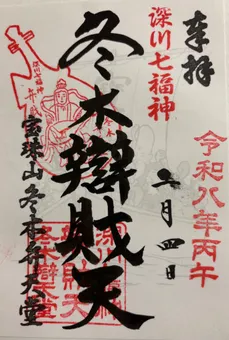 奉拝
深川七福神
令和八年丙午
一月四日
冬木辯財天
宝珠山冬木弁天堂
深川七福神